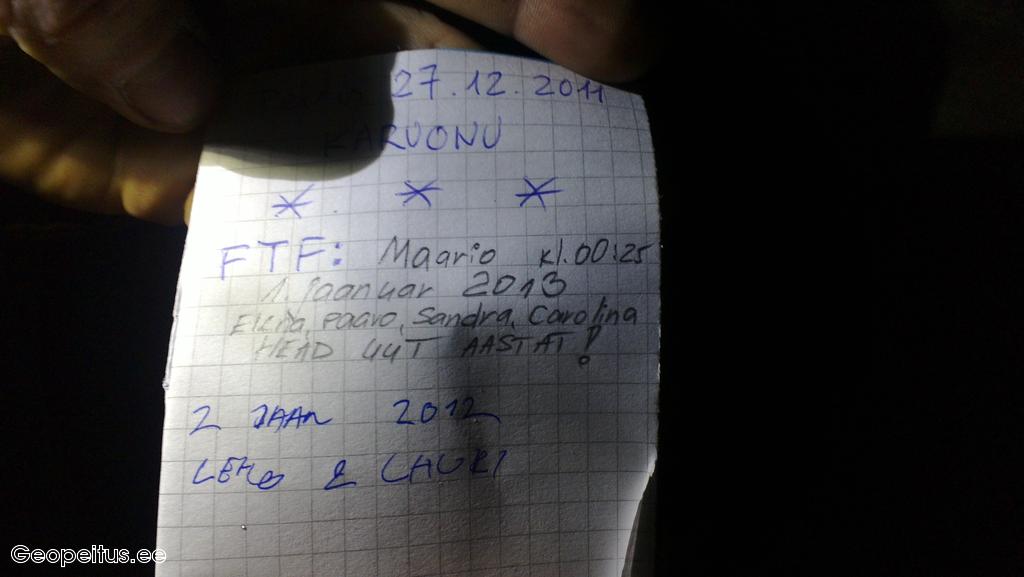 27.12.2011
KARUONU
* * *
FTF: Maario kl.00:25
1. jaanuar 2013
Elena, Paavo, Sandra, Carolina
HEAD UUT AASTAT!
2 JAAN 2012
LEHO & LAURI
Geopeitus.ee